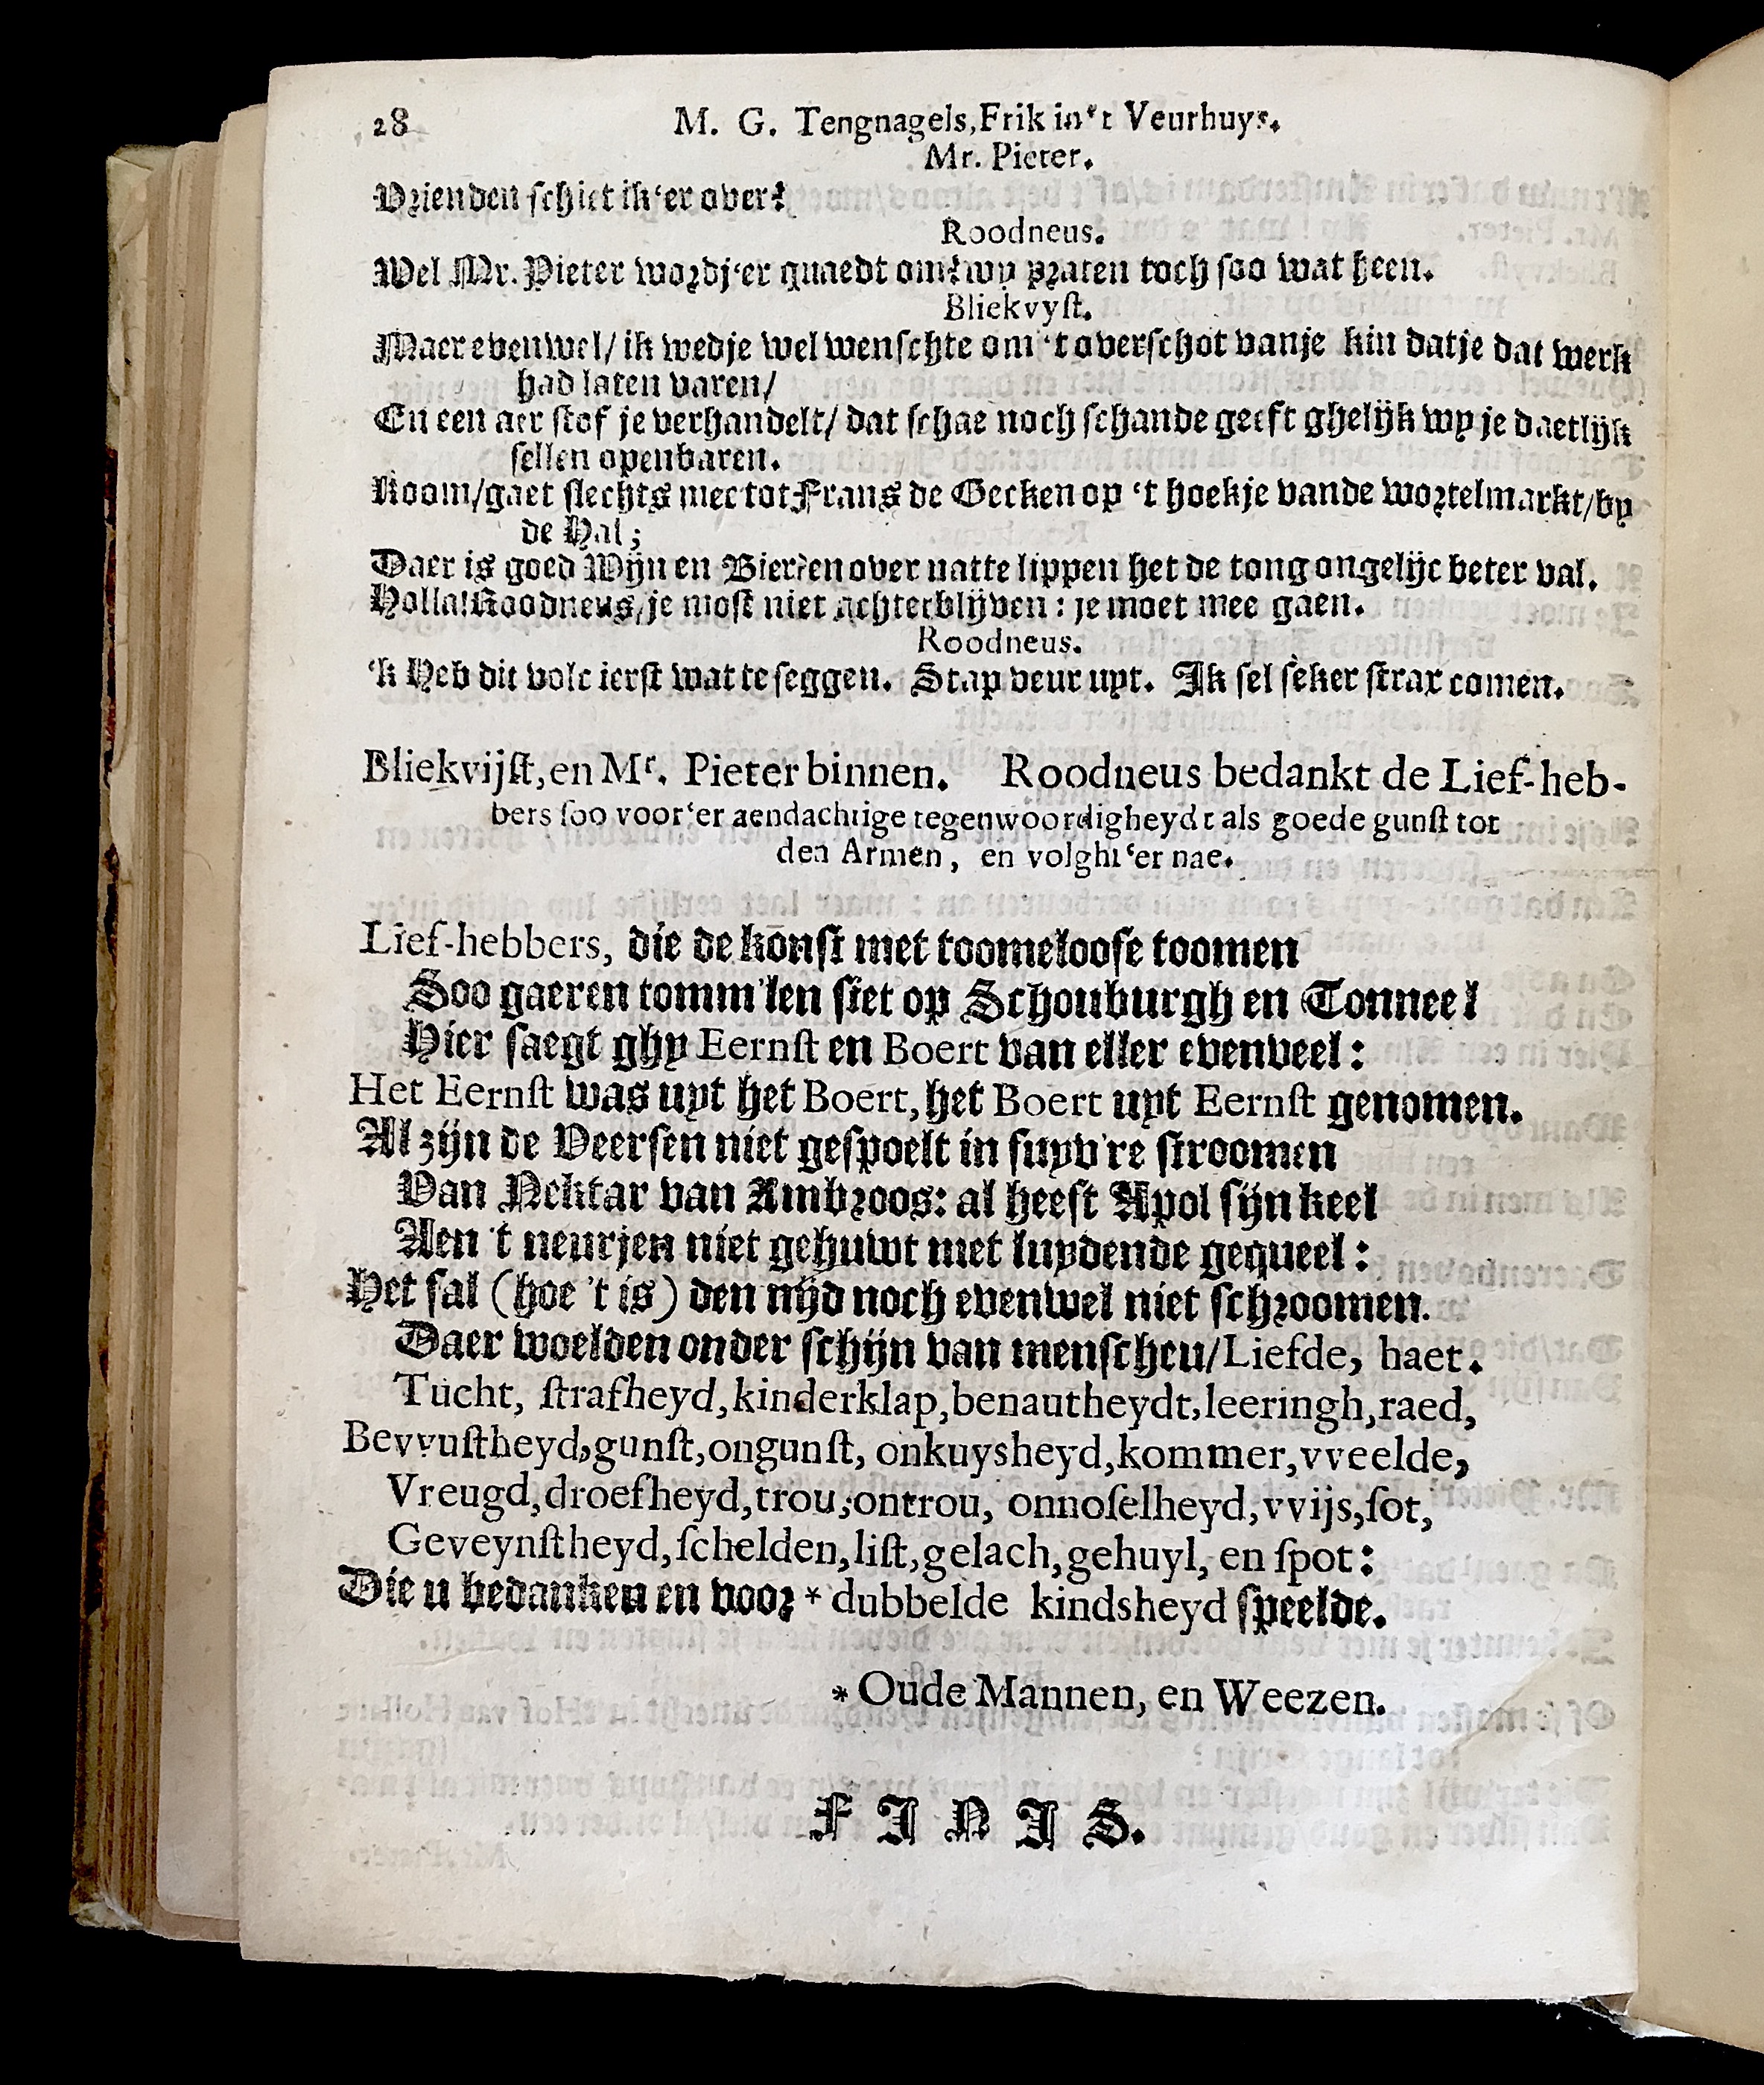 28 M. G. Tengnagels, Frik in 't Veurhuys.
Mr. Pieter.
Vrienden schiet ik 'er over?
Roodneus.
Wel Mr. Pieter wordj'er quaedt om? wy praten toch soo wat heen.
Bliekvyst.
Maer evenwel/ ik wedje wel wenschte om 't overschot vanje kin datje dat werk
had laten varen/
En een aer stof je verhandelt/ dat schae noch schande geeft ghelijk wy je daetlijk
sellen openbaren.
Koom/gaet slechts mee tot Frans de Gecken op 't hoekje vande wortelmarkt/by
de Hal;
Daer is goed Wijn en Bier? en over natte lippen het de tong ongelijc beter val.
Holla! Roodneus, je most niet achterblijven : je moet mee gaen.
Roodneus.
'k Heb dit volc ierst wat te seggen. Stap veur uyt. Ik sel seker strax comen.
Bliekvijst, en Mr. Pieter binnen. Roodneus bedankt de Lief-heb-
bers soo voor 'er aendachtige tegenwoordigheydt als goede gunst tot
den Armen, en volght 'er nae.
Lief-hebbers, die de konst met toomeloose toomen
Soo gaeren tomm'len siet op Schouburgh en Tonneel
Hier saegt ghy Eernst en Boert van eller evenveel :
Het Eernst was uyt het Boert, het Boert uyt Eernst genomen.
Al zijn de Veersen niet gespoelt in suyv're stroomen
Van Nektar van Ambroos: al heeft Apol sijn keel
Aen 't neurjen niet gehuwt met luydende gequeel :
Het sal (hoe 't is) den nijd noch evenwel niet schroomen.
Daer woelden onder schijn van menschen/ Liefde, haet.
Tucht, strafheyd, kinderklap, benautheydt, leeringh, raed,
Bevvustheyd, gunst, ongunst, onkuysheyd, kommer, vveelde,
Vreugd, droefheyd, trou, ontrou, onnoselheyd, vvijs, sot,
Geveynstheyd, schelden, list, gelach, gehuyl, en spot :
Die u bedanken en voor * dubbelde kindsheyd speelde.
* Oude Mannen, en Weezen.
FINIS.